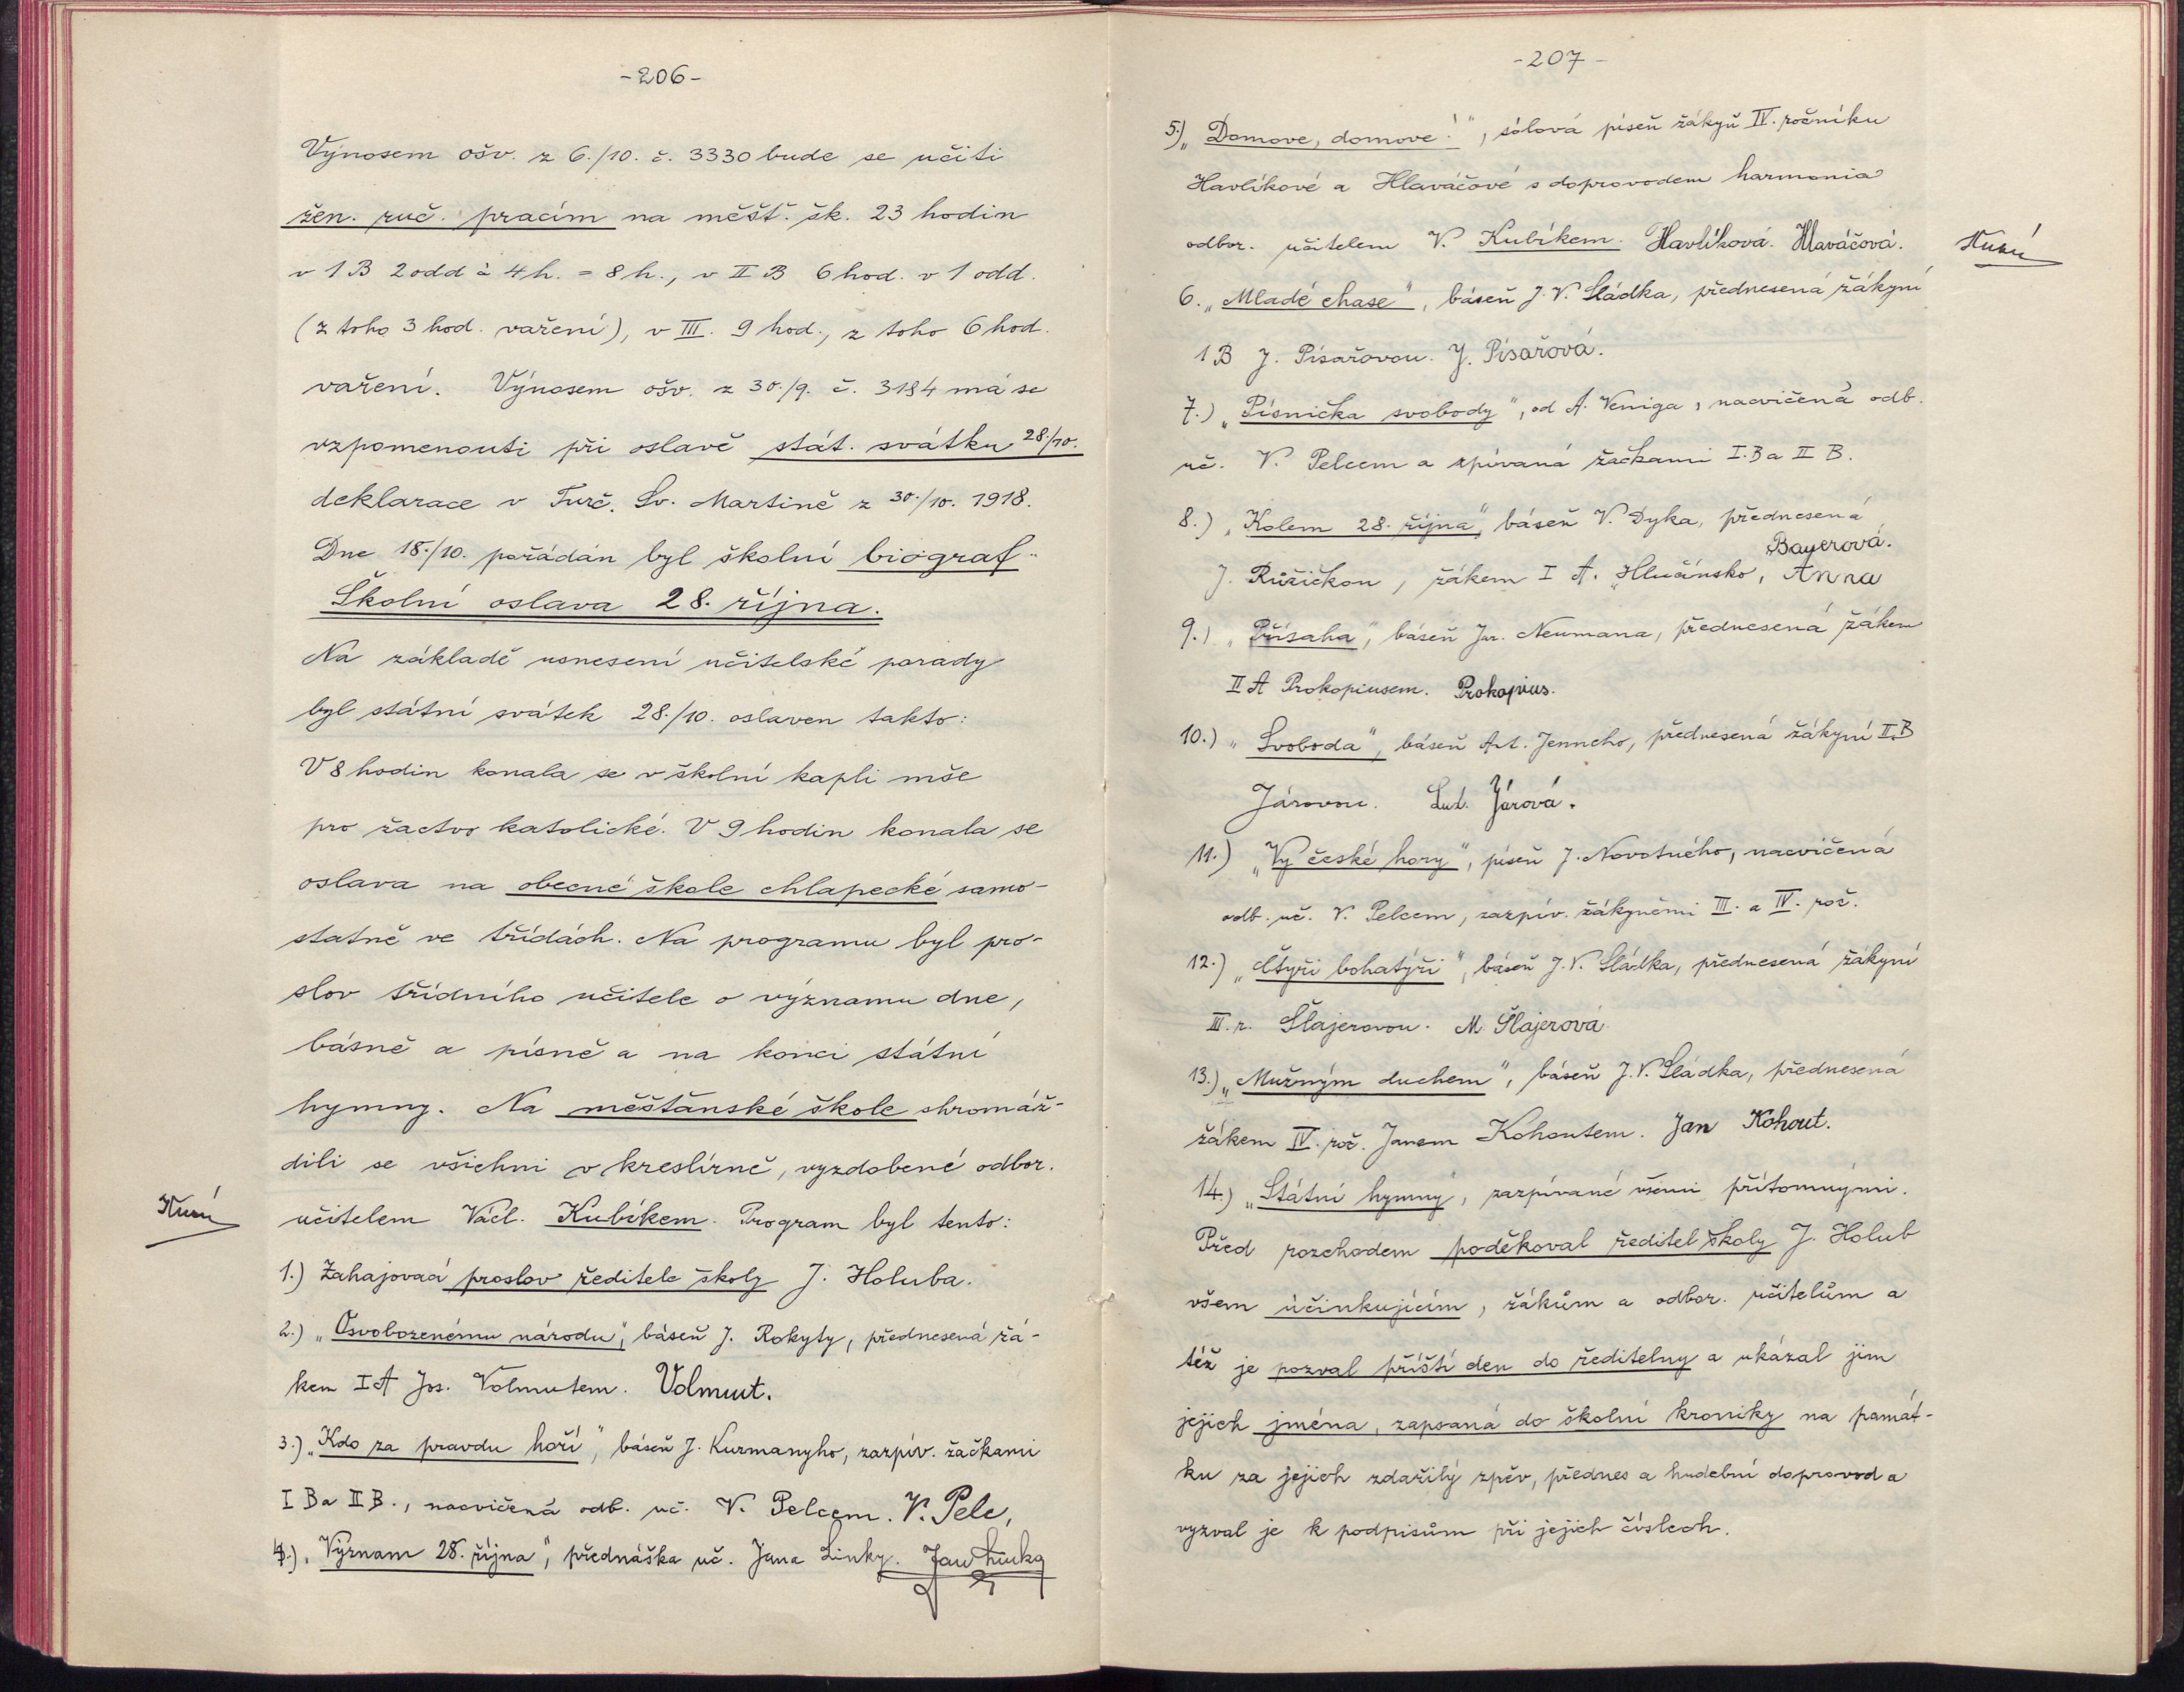 -206-
Výnosem ošv. z 6./10. č. 3330 bude se učiti
žen. ruč. pracím na měšť. šk. 23 hodin
v 1 B 2 odd à 4 h. = 8 h., v II B 6 hod. v 1 odd.
(z toho 3 hod. vaření), v III. 9 hod., z toho 6 hod.
vaření. Výnosem ošv. z 30./9. č. 3184 má se
vzpomenouti při oslavě stát. svátku 28./10.
deklarace v Turč. Sv. Martině z 30./10. 1918.
Dne 18./10. pořádán byl školní biograf.
Školní oslava 28. října.
Na základě usnesení učitelské porady
byl státní svátek 28./10. oslaven takto:
V 8 hodin konala se v školní kapli mše
pro žactvo katolické. V 9 hodin konala se
oslava na obecné škole chlapecké samo-
statně ve třídách. Na programu byl pro-
slov třídního učitele o významu dne,
básně a písně a na konci státní
hymny. Na měšťanské škole shromáž-
dili se všichni v kreslírně, vyzdobené odbor.
učitelem Václ. Kubíkem. Program byl tento:
1.) Zahajovaá proslov ředitele školy J. Holuba.
2.) „Osvobozenému národu", báseň J. Rokyty, přednesená žá-
kem I A Jos. Volmutem. Volmut.
3.) „Kdo za pravdu hoří", báseň J. Kuzmanyho, zazpív. žačkami
I B a II B., nacvičená odb. uč. V. Pelcem. V. Pelc,
4.) „Význam 28. října", přednáška uč. Jana Linky. Jan Linka
-207-
5.) „Domove, domove!", sólová píseň žákyň IV. ročníku
Havlíkové a Hlaváčové s doprovodem harmonia
odbor. učitelem V. Kubíkem. Havlíková. Hlaváčová.
6. „Mladé chase", báseň J. V. Sládka, přednesená žákyní
1 B J. Písařovou. J. Písařová.
7.) „Písnička svobody", od A. Veniga, nacvičená odb.
uč. V. Pelcem a zpívaná žačkami I. B a II B.
8.) „Kolem 28. října", báseň V. Dyka, přednesená
Bayerová.
J. Růžičkou, žákem I A. „Hlučínsko, Anna
9.) „Přísaha", báseň Jar. Neumana, přednesená žákem
II A Prokopiusem. Prokopius.
10.) „Svoboda", báseň Ant. Jenneho, přednesená žákyní II. B
Járovou. Lud. Járová.
11.) „Vy české hory", píseň J. Novotného, nacvičená
odb. uč. V. Pelcem, zazpív. žákyněmi III. a IV. roč.
12.) „Čtyři bohatýři", báseň J. V. Sládka, přednesená žákyní
III. r. Šlajerovou. M. Šlajerová.
13.) „Mužným duchem", báseň J. V. Sládka, přednesená
žákem IV. roč. Janem Kohoutem. Jan Kohout.
14.) „Státní hymny", zazpívané všemi přítomnými.
Před rozchodem poděkoval ředitel školy J. Holub
všem účinkujícím, žákům a odbor. učitelům a
též je pozval příští den do ředitelny a ukázal jim
jejich jména, zapsaná do školní kroniky na památ-
ku za jejich zdařilý zpěv, přednes a hudební doprovod a
vyzval je k podpisům při jejich číslech.